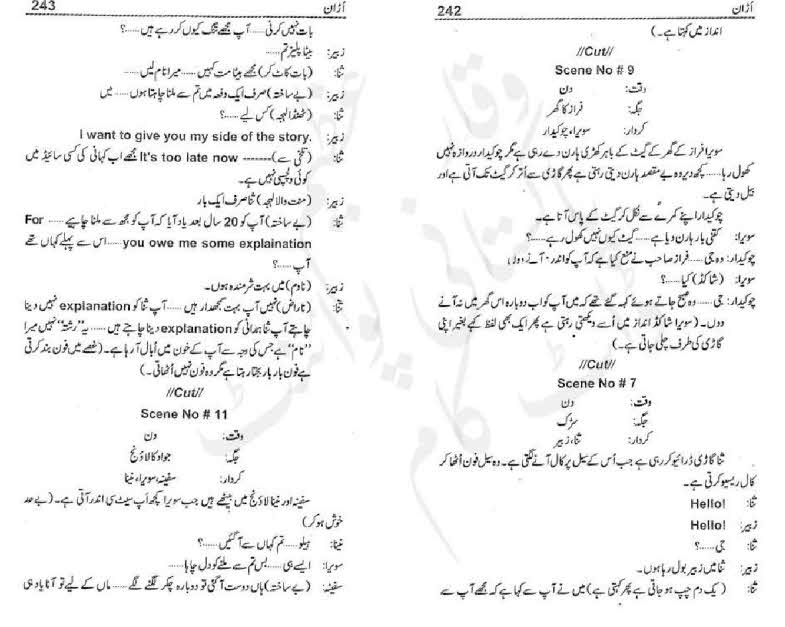 242
اُڑان
انداز میں کہتا ہے۔)
//Cut//
Scene No # 9
وقت: دن
جگہ: فراز کا گھر
کردار: سویرا، چوکیدار
سویرا فراز کے گھر کے گیٹ کے باہر کھڑی ہارن دے رہی ہے مگر چوکیدار دروازہ نہیں
کھول رہا...... کچھ دیر وہ بے مقصد ہارن دیتی رہتی ہے پھر گاڑی سے اُتر کر گیٹ تک آتی ہے اور
بیل دیتی ہے۔
چوکیدار اپنے کمرے سے نکل کر گیٹ کے پاس آتا ہے۔
سویرا: کتنی بار ہارن دیا ہے...... گیٹ کیوں نہیں کھول رہے......؟
چوکیدار: وہ جی...... فراز صاحب نے منع کیا ہے کہ آپ کو اندر آنے دوں
سویرا: (شاکڈ) کیا......؟
چوکیدار: جی...... وہ صبح جاتے ہوئے کہہ گئے تھے کہ میں آپ کو اب دوبارہ اس گھر میں نہ آنے
دوں۔ (سویرا شاکڈ انداز میں اُسے دیکھتی رہتی ہے پھر ایک بھی لفظ کہے بغیر اپنی
گاڑی کی طرف چلی جاتی ہے۔)
//Cut//
Scene No # 7
وقت: دن
جگہ: سڑک
کردار: ثنا، زبیر
ثنا گاڑی ڈرائیو کر رہی ہے جب اُس کے سیل پر کال آنے لگتی ہے۔ وہ سیل فون اُٹھا کر
کال ریسیو کرتی ہے۔
ثنا: Hello!
زبیر: Hello!
ثنا: جی......؟
زبیر: ثنا میں زبیر بول رہا ہوں۔
ثنا: (یک دم چپ ہو جاتی ہے پھر کہتی ہے) میں نے آپ سے کہا ہے کہ مجھے آپ سے
243
اُڑان
بات نہیں کرنی...... آپ مجھے تنگ کیوں کر رہے ہیں......؟
زبیر: بیٹا پلیز تم......
ثنا: (بات کاٹ کر) مجھے بیٹا مت کہیں...... میرا نام لیں......
زبیر: (بے ساختہ) صرف ایک دفعہ میں تم سے ملنا چاہتا ہوں...... میں
ثنا: (ٹھنڈا لہجہ) کس لیے......؟
زبیر: I want to give you my side of the story.
ثنا: (تلخی سے) It's too late now ------- مجھے اب کہانی کی کسی سائیڈ میں
کوئی دلچسپی نہیں ہے۔
زبیر: (منت والا لہجہ) ثنا صرف ایک بار
ثنا: (بے ساختہ) آپ کو 20 سال بعد یاد آیا کہ آپ کو مجھ سے ملنا چاہیے...... For
you owe me some explaination...... اس سے پہلے کہاں تھے
آپ......؟
زبیر: (نادم) میں بہت شرمندہ ہوں۔
ثنا: (ناراض) نہیں آپ بہت سمجھدار ہیں...... آپ ثنا کو explanation نہیں دینا
چاہتے آپ ثنا ہمدانی کو explanation دینا چاہتے ہیں...... یہ ”رشتہ“ نہیں میرا
”نام“ ہے جس کی وجہ سے آپ کے خون میں اُبال آ رہا ہے۔ (غصے میں فون بند کرتی
ہے فون بار بار بجتا رہتا ہے مگر وہ فون نہیں اُٹھاتی۔)
//Cut//
Scene No # 11
وقت: دن
جگہ: جواد کا لاؤنج
کردار: سفینہ، سویرا، نینا
سفینہ اور نینا لاؤنج میں بیٹھے ہیں جب سویرا کچھ اَپ سیٹ سی اندر آتی ہے۔ (بے حد
خوش ہو کر)
نینا: ہیلو...... تم کہاں سے آ گئیں......؟
سویرا: ایسے ہی...... بس تم سے ملنے کو دل چاہا......
سفینہ: (بے ساختہ) ہاں دوست آ گئی تو دوبارہ چکر لگنے لگے...... ماں کے لیے تو آنا یاد ہی